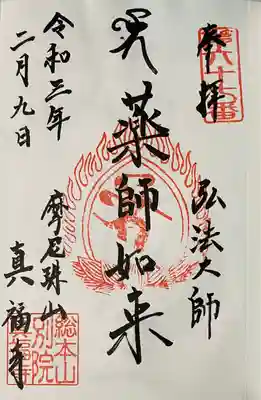 奉拝
第六十七番
弘法大師
薬師如来
摩尼珠山
真福寺
令和三年
二月九日
総本山
別院
真福寺